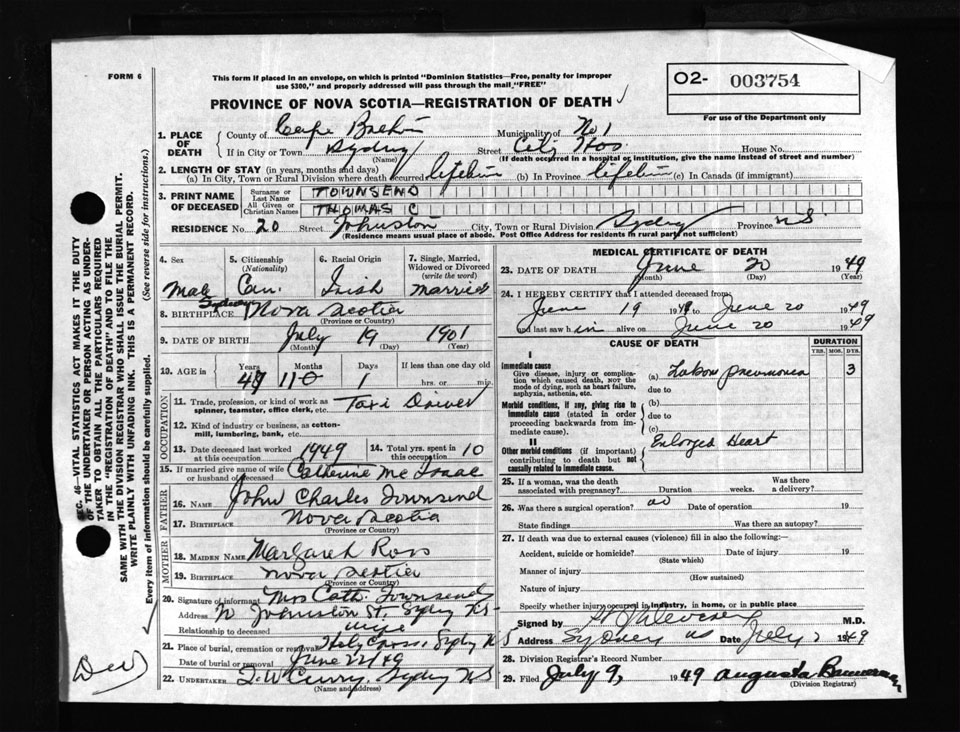 FORM 6
This form if placed in an envelope, on which is printed "Dominion Statistics—Free, penalty for improper
use $300," and properly addressed will pass through the mail, "FREE"
PROVINCE OF NOVA SCOTIA—REGISTRATION OF DEATH
O2- 003754
For use of the Department only
1. PLACE OF DEATH
County of Cape Breton Municipality of No 1
If in City or Town Sydney (Name) Street City Hos. House No.
(If death occurred in a hospital or institution, give the name instead of street and number)
2. LENGTH OF STAY (in years, months and days)
(a) In City, Town or Rural Division where death occurred lifetime (b) In Province lifetime (c) In Canada (if immigrant)
3. PRINT NAME OF DECEASED
Surname or Last Name TOWNSEND
All Given or Christian Names THOMAS C
RESIDENCE No. 20 Street Johnston City, Town or Rural Division Sydney Province NS
(Residence means usual place of abode. Post Office Address for residents in rural part not sufficient)
4. Sex 5. Citizenship (Nationality) 6. Racial Origin 7. Single, Married, Widowed or Divorced (write the word)
Male Can. Irish married
8. BIRTHPLACE Sydney Nova Scotia
(Province or Country)
9. DATE OF BIRTH July 19 1901
(Month) (Day) (Year)
10. AGE in Years Months Days If less than one day old
11 1 hrs. or min.
OCCUPATION
11. Trade, profession, or kind of work as
spinner, teamster, office clerk, etc. Taxi Driver
12. Kind of industry or business, as cotton-
mill, lumbering, bank, etc.
13. Date deceased last worked at this occupation 1949 14. Total yrs. spent in 10
15. If married give name of wife or husband of deceased Catherine Mc Isaac
FATHER
16. NAME John Charles Townsend
17. BIRTHPLACE Nova Scotia
(Province or Country)
MOTHER
18. MAIDEN NAME Margaret Ross
19. BIRTHPLACE Nova Scotia
(Province or Country)
20. Signature of informant Mrs Cath. Townsend
Address Johnston St. Sydney NS
Relationship to deceased wife
21. Place of burial, cremation or removal Holy Cross, Sydney NS
Date of burial or removal June 22/49
22. UNDERTAKER T. W Curry. Sydney NS
(Name and address)
MEDICAL CERTIFICATE OF DEATH
23. DATE OF DEATH June 20 1949
(Month) (Day) (Year)
24. I HEREBY CERTIFY that I attended deceased from
June 19 1949 to June 20 1949
and last saw him alive on June 20 1949
CAUSE OF DEATH DURATION
YRS. MOS. DYS.
I
Immediate cause
Give disease, injury or compli-
cation which caused death, NOT the
mode of dying, such as heart failure,
asphyxia, asthenia, etc.
(a) Lobar pneumonia 3
due to
Morbid conditions, if any, giving rise to
immediate cause (stated in order
proceeding backwards from im-
mediate cause).
(b)
due to
(c)
II
Other morbid conditions (if important)
contributing to death but not
causally related to immediate cause.
Enlarged Heart
25. If a woman, was the death associated with pregnancy? Duration weeks. Was there a delivery?
26. Was there a surgical operation? no Date of operation 19
State findings Was there an autopsy?
27. If death was due to external causes (violence) fill in also the following:—
Accident, suicide or homicide? Date of injury 19
(State which)
Manner of injury
(How sustained)
Nature of injury
Specify whether injury occurred in industry, in home, or in public place
Signed by M.D.
Address Sydney NS Date July 1949
28. Division Registrar's Record Number
29. Filed July 9, 1949 Augusta
(Division Registrar)
SEC. 46—VITAL STATISTICS ACT MAKES IT THE DUTY
OF THE UNDERTAKER OR PERSON ACTING AS UNDER-
TAKER TO OBTAIN ALL THE PARTICULARS REQUIRED
IN THE "REGISTRATION OF DEATH" AND TO FILE THE
SAME WITH THE DIVISION REGISTRAR WHO SHALL ISSUE THE BURIAL PERMIT.
WRITE PLAINLY WITH UNFADING INK. THIS IS A PERMANENT RECORD.
Every item of information should be carefully supplied. (See reverse side for instructions.)